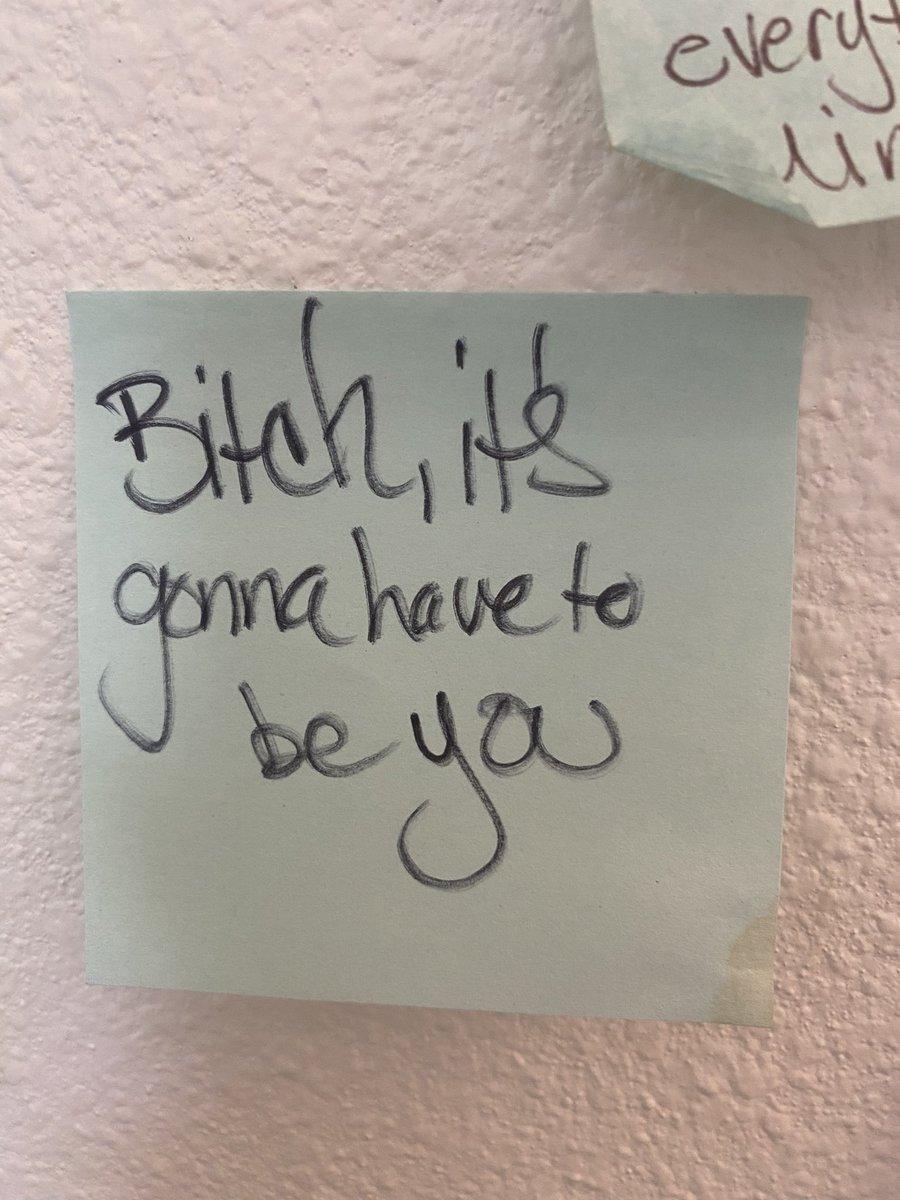 everyt
lin
Bitch, it's
gonna have to
be you